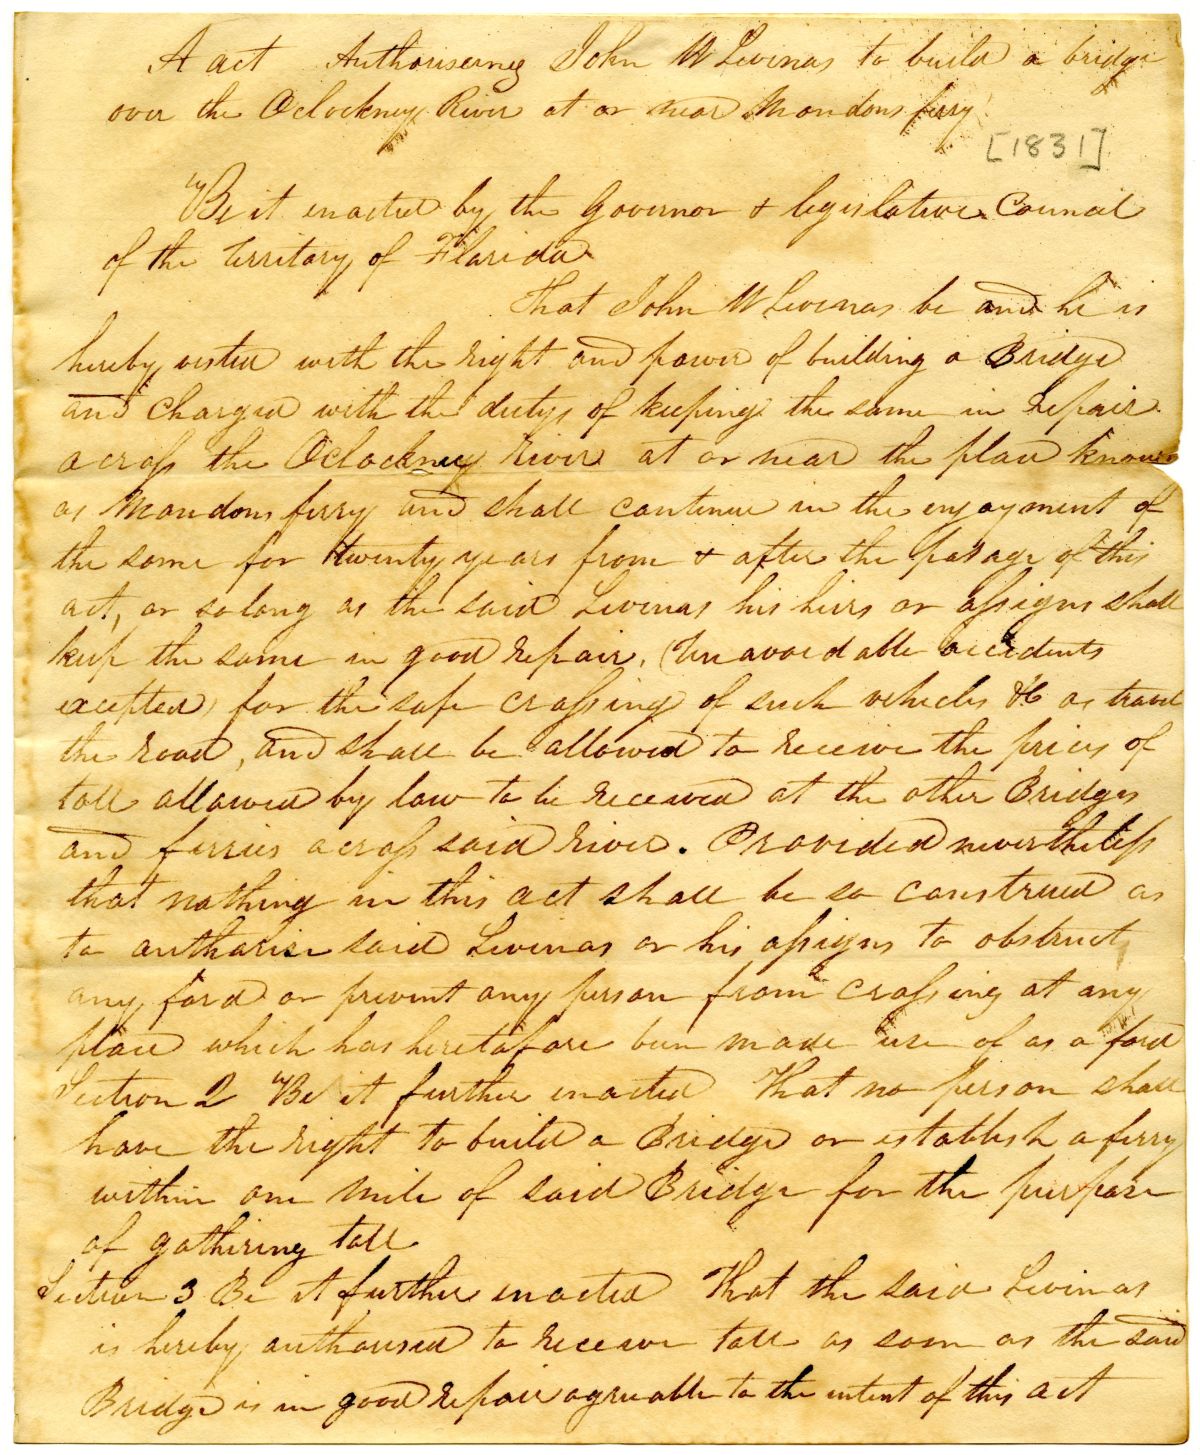 A act Authouseing John W Levinas to build a bridge
over the Oclockney River at or near Mandons ferry
[1831]
Be it enacted by the Governor & legislative Council
of the territory of Florida
That John W Levinas be and he is
hereby vested with the right and power of building a Bridge
and Charged with the dutys of keeping the same in repair
across the Oclockney River at or near the place known
as Mandons ferry and shall continue in the enjoyment of
the same for twenty years from & after the pasage of this
act, or so long as the said Levinas his heirs or assigns shall
keep the same in good repair, (Unavoidable accidents
excepted) for the safe crossing of such vehicles &c as travel
the road, and shall be allowed to receive the prices of
toll allowed by law to be received at the other Bridges
and ferries across said river. Provided nevertheless
that nothing in this act shall be so construed as
to authorise said Levinas or his assigns to obstruct
any ford or prevent any person from crossing at any
place which has heretofore been made use of as a ford
Section 2 Be it further enacted That no person shall
have the right to build a Bridge or establish a ferry
within one mile of said Bridge for the purpose
of gathering toll
Section 3 Be it further enacted That the said Levinas
is hereby authoused to receive toll as soon as the said
Bridge is in good repair agreeable to the intent of this act